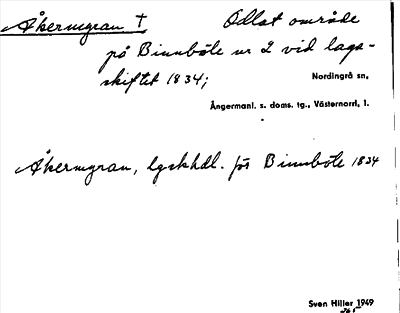 Åkermyran † Odlat område
på Binnböle nr 2 vid laga-
skiftet 1834;
Nordingrå sn,
Ångermanl. s. doms. tg., Västernorrl. l.
Åkermyran, lgskhdl. för Binnböle 1834
Sven Hiller 1949